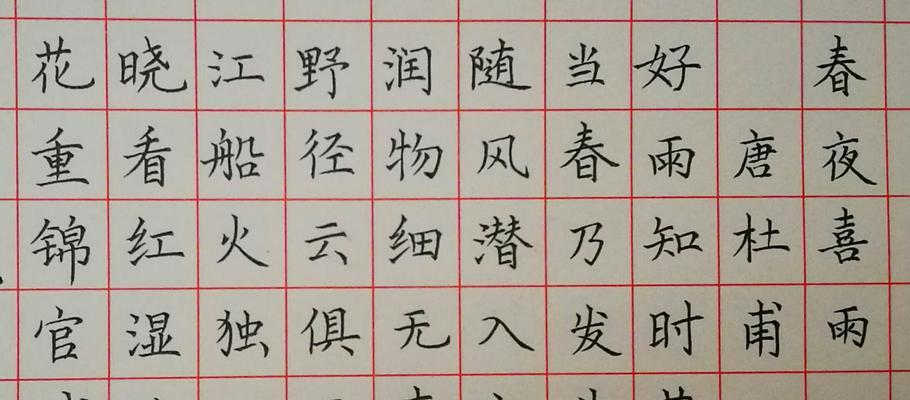 春夜喜雨
唐杜甫
好雨知时
当春乃发
随风潜入
润物细无
野径云俱
江船火独
晓看红湿
花重锦官